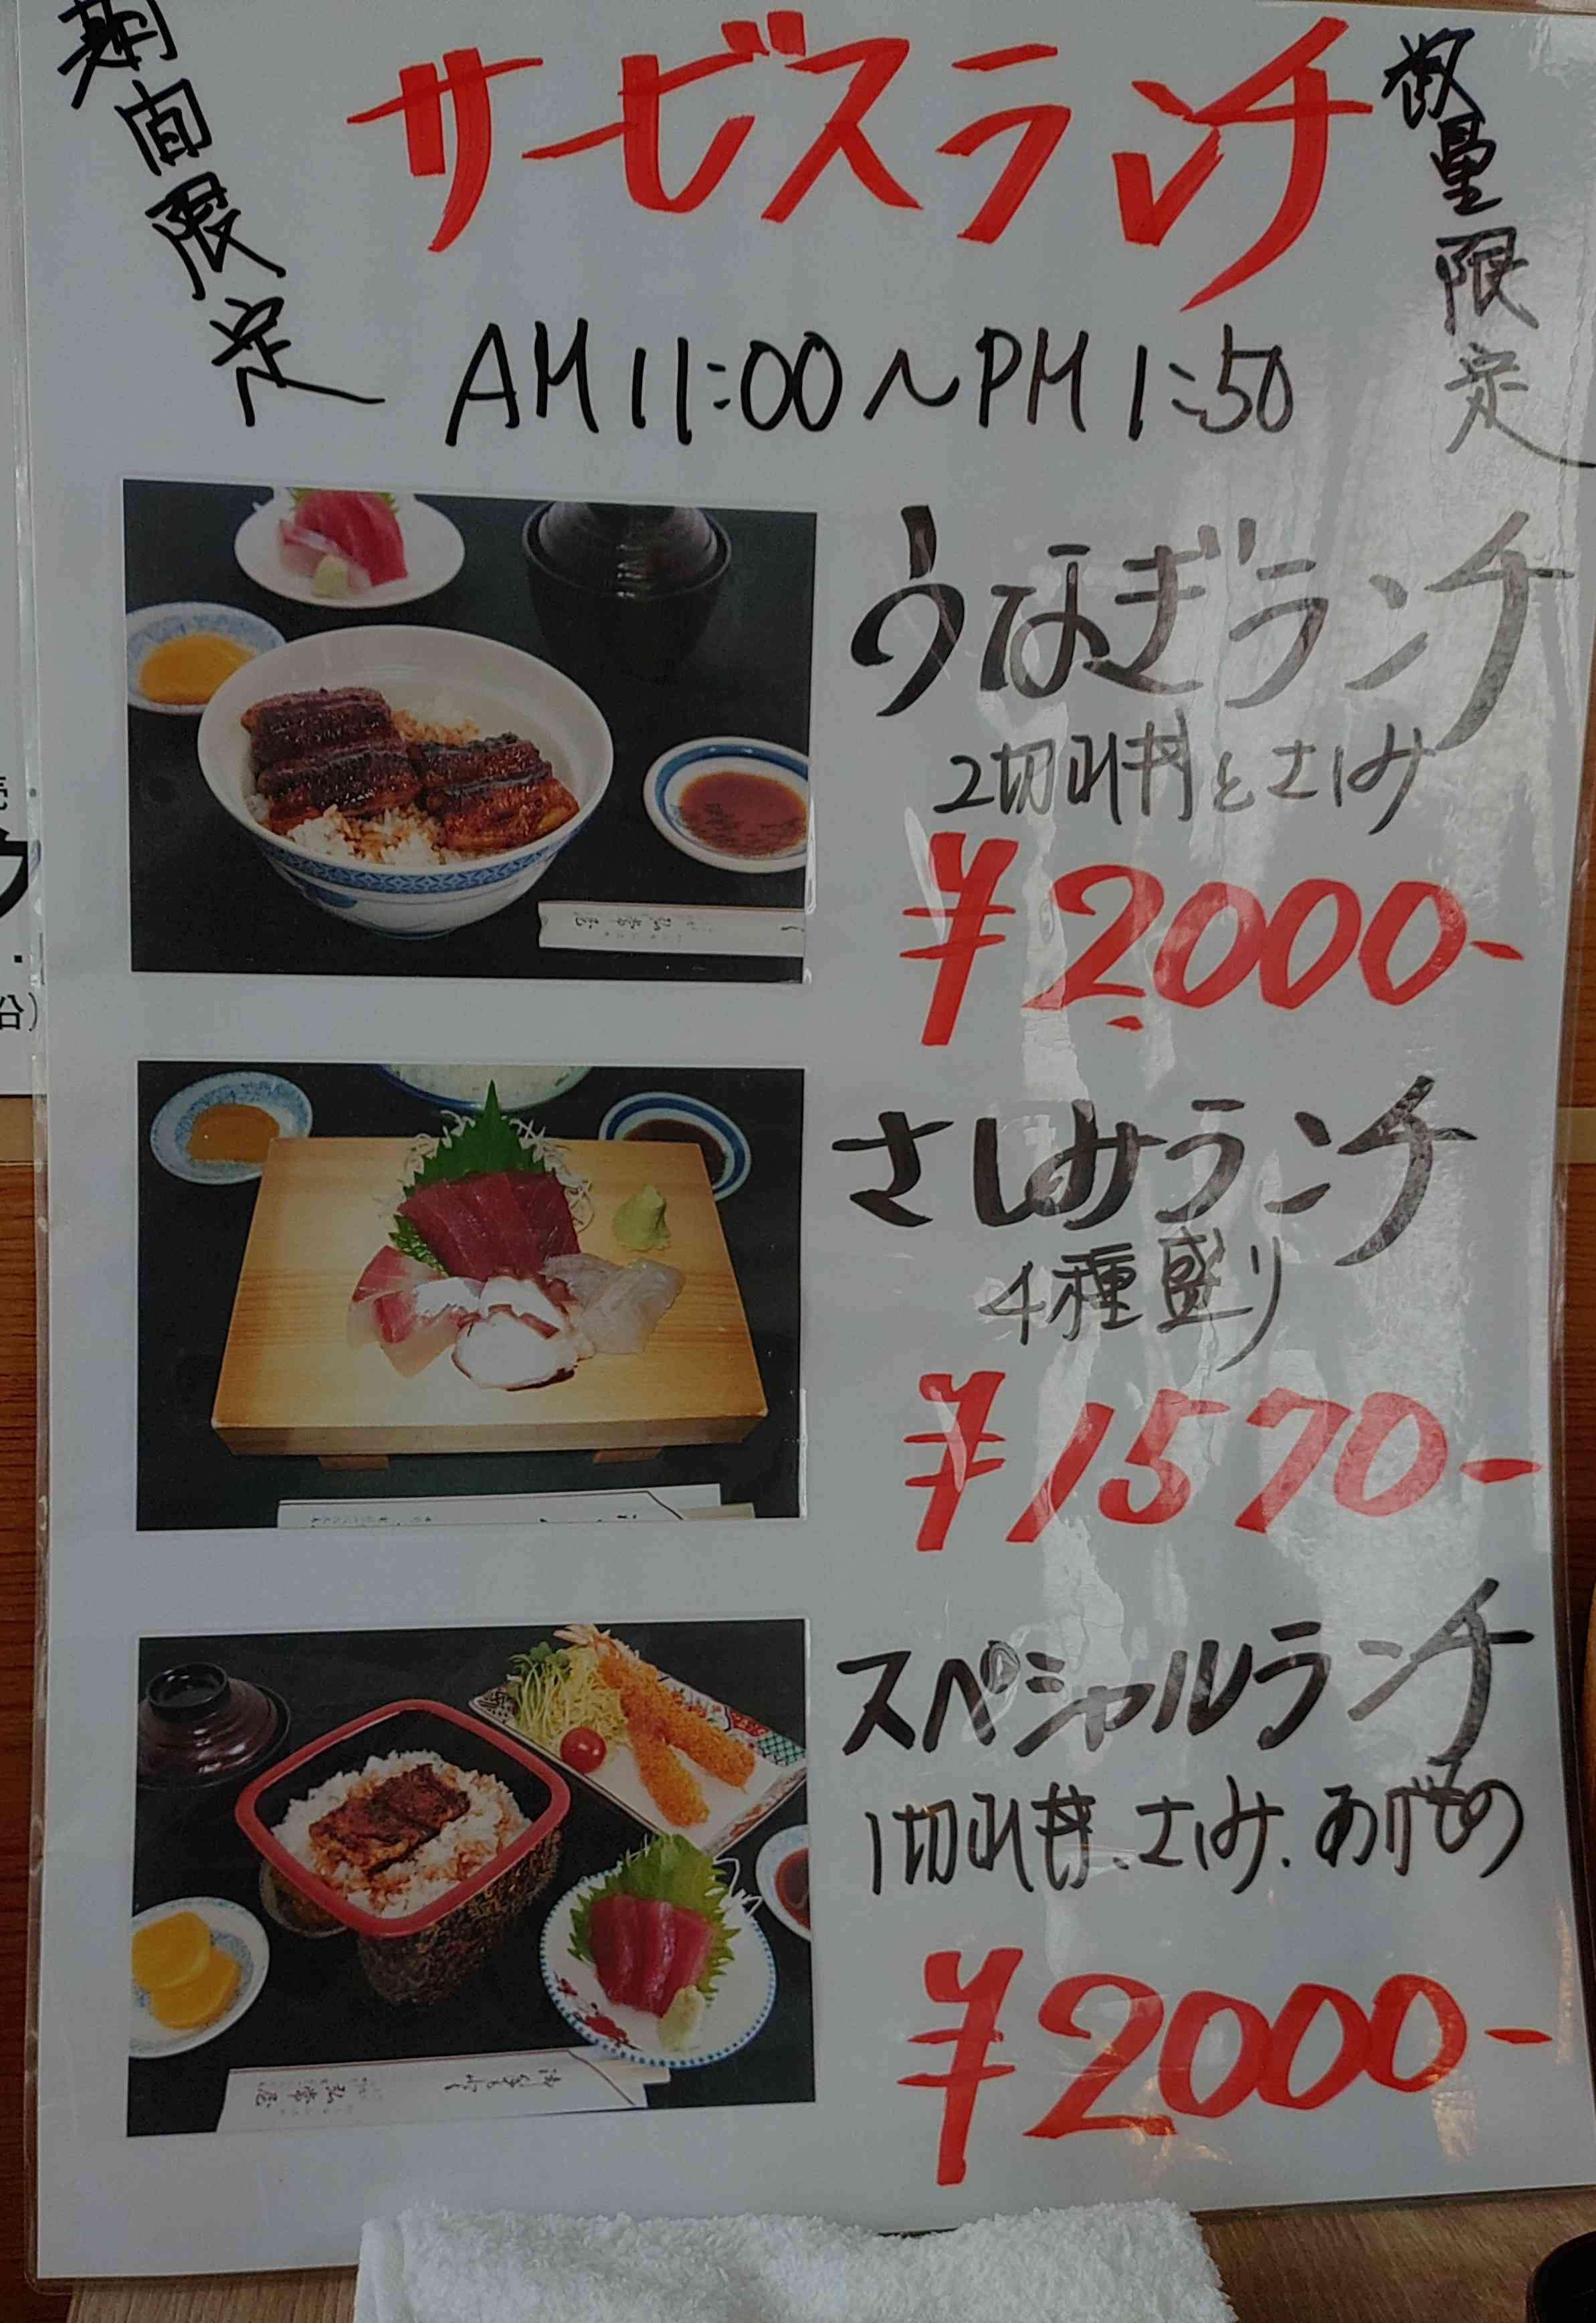 期間限定
サービスランチ
数量限定
AM 11:00～PM 1:50
うなぎランチ
2切れ丼とさしみ
¥2,000-
さしみランチ
4種盛り
¥1570-
スペシャルランチ
1切れ丼、さしみ、あげもの
¥2000-